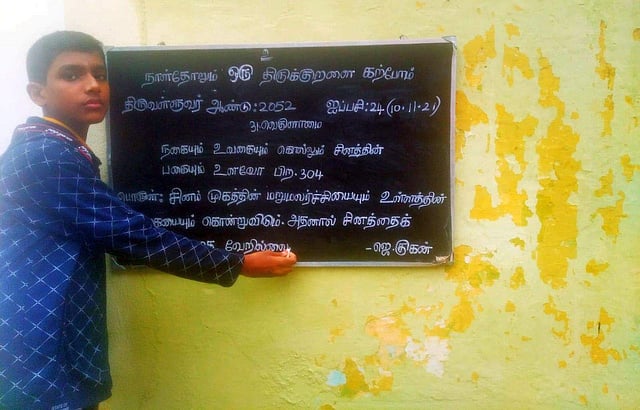 உ
நாள்தோறும் ஒரு திருக்குறளை கற்போம்
திருவள்ளுவர் ஆண்டு:2052 ஐப்பசி:24 (10.11.21)
31.வெகுளாமை
நகையும் உவகையும் கொல்லும் சினத்தின்
பகையும் உளவோ பிற.304
பொருள்: சினம் முகத்தின் மறுமலர்ச்சியையும் உள்ளத்தின்
கொன்றுவிடும். அதனால் சினத்தைக்
வேறில்லை -ஜெ.முகன்